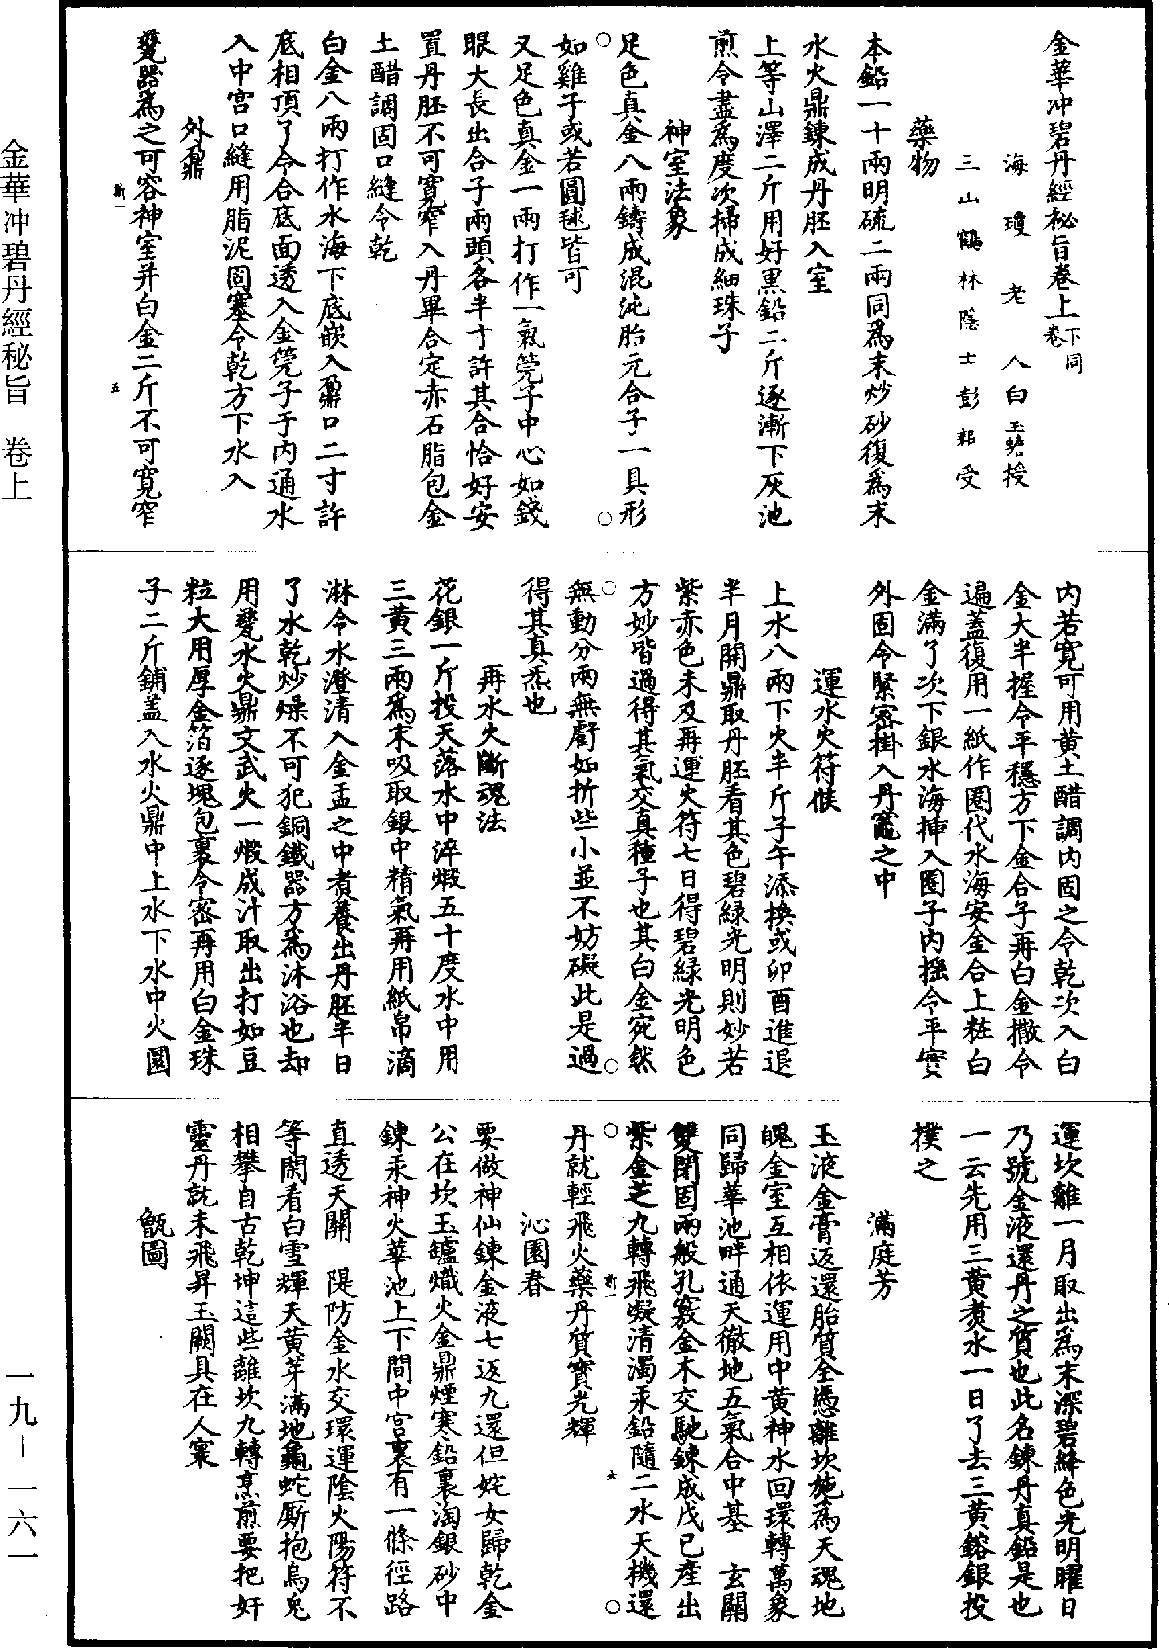 金華冲碧丹經秘旨 卷上
一九—一六一
金華冲碧丹經秘旨卷上下卷同
海瓊老人白玉蟾授
三山鶴林隱士彭耜受
藥物
本鉛一十兩明硫二兩同爲末炒砂復爲末
水火鼎鍊成丹胚入室
上等山澤二斤用好黑鉛二斤逐漸下灰池
煎令盡爲度次掃成細珠子
神室法象
足色真金八兩鑄成混沌胎元合子一具形
如雞子或若圓毬皆可
又足色真金一兩打作一氣筦子中心如錢
眼大長出合子兩頭各半寸許其合恰好安
置丹胚不可寛窄入丹畢合定赤石脂包金
土醋調固口縫令乾
白金八兩打作水海下底嵌入鼎口二寸許
底相頂了令合底面透入金筦子于内通水
入中宫口縫用脂泥固塞令乾方下水入
外鼎
甆器爲之可容神室并白金二斤不可寛窄
斯一
五
内若寛可用黄土醋調内固之令乾次入白
金大半握令平穩方下金合子再白金撒令
遍蓋復用一紙作圈代水海安金合上粧白
金滿了次下銀水海挿入圈子内摇令平實
外固令緊密掛入丹竈之中
運水火符候
上水八兩下火半斤子午添換或卯酉進退
半月開鼎取丹胚看其色碧緑光明則妙若
紫赤色未及再運火符七日得碧緑光明色
方妙皆過得其氣交真種子也其白金宛然
無動分兩無虧如折些小並不妨礙此是過
得其真炁也
再水火斷魂法
花銀一斤投天落水中淬煅五十度水中用
三黄三兩爲末吸取銀中精氣再用紙帛滴
淋令水澄清入金盂之中煮養出丹胚半日
了水乾炒燥不可犯銅鐵器方爲沐浴也却
用甆水火鼎文武火一煅成汁取出打如豆
粒大用厚金箔逐塊包裹令密再用白金珠
子二斤鋪蓋入水火鼎中上水下水中火圜
運坎離一月取出爲末深碧絳色光明耀日
乃號金液還丹之質也此名鍊丹真鉛是也
一云先用三黄煑水一日了去三黄鎔銀投
撲之
滿庭芳
玉液金膏返還胎質全憑離坎施爲天魂地
魄金室互相依運用中黄神水回環轉萬象
同歸華池畔通天徹地五氣合中基 玄關
雙閉固兩般孔竅金木交馳鍊成戊己產出
紫金芝九轉飛凝清濁汞鉛隨二水天機還
斯一
六
丹就輕飛火藥丹質寳光輝
沁園春
要做神仙鍊金液七返九還但姹女歸乾金
公在坎玉鑪熾火金鼎煙寒鉛裏淘銀砂中
鍊汞神火華池上下間中宫裏有一條徑路
直透天關 隄防金水交環運陰火陽符不
等閑看白雪輝天黄芽滿地龜蛇厮抱烏兎
相攀自古乾坤這些離坎九轉烹煎要把奸
靈丹就未飛昇玉闕且在人寰
甑圖